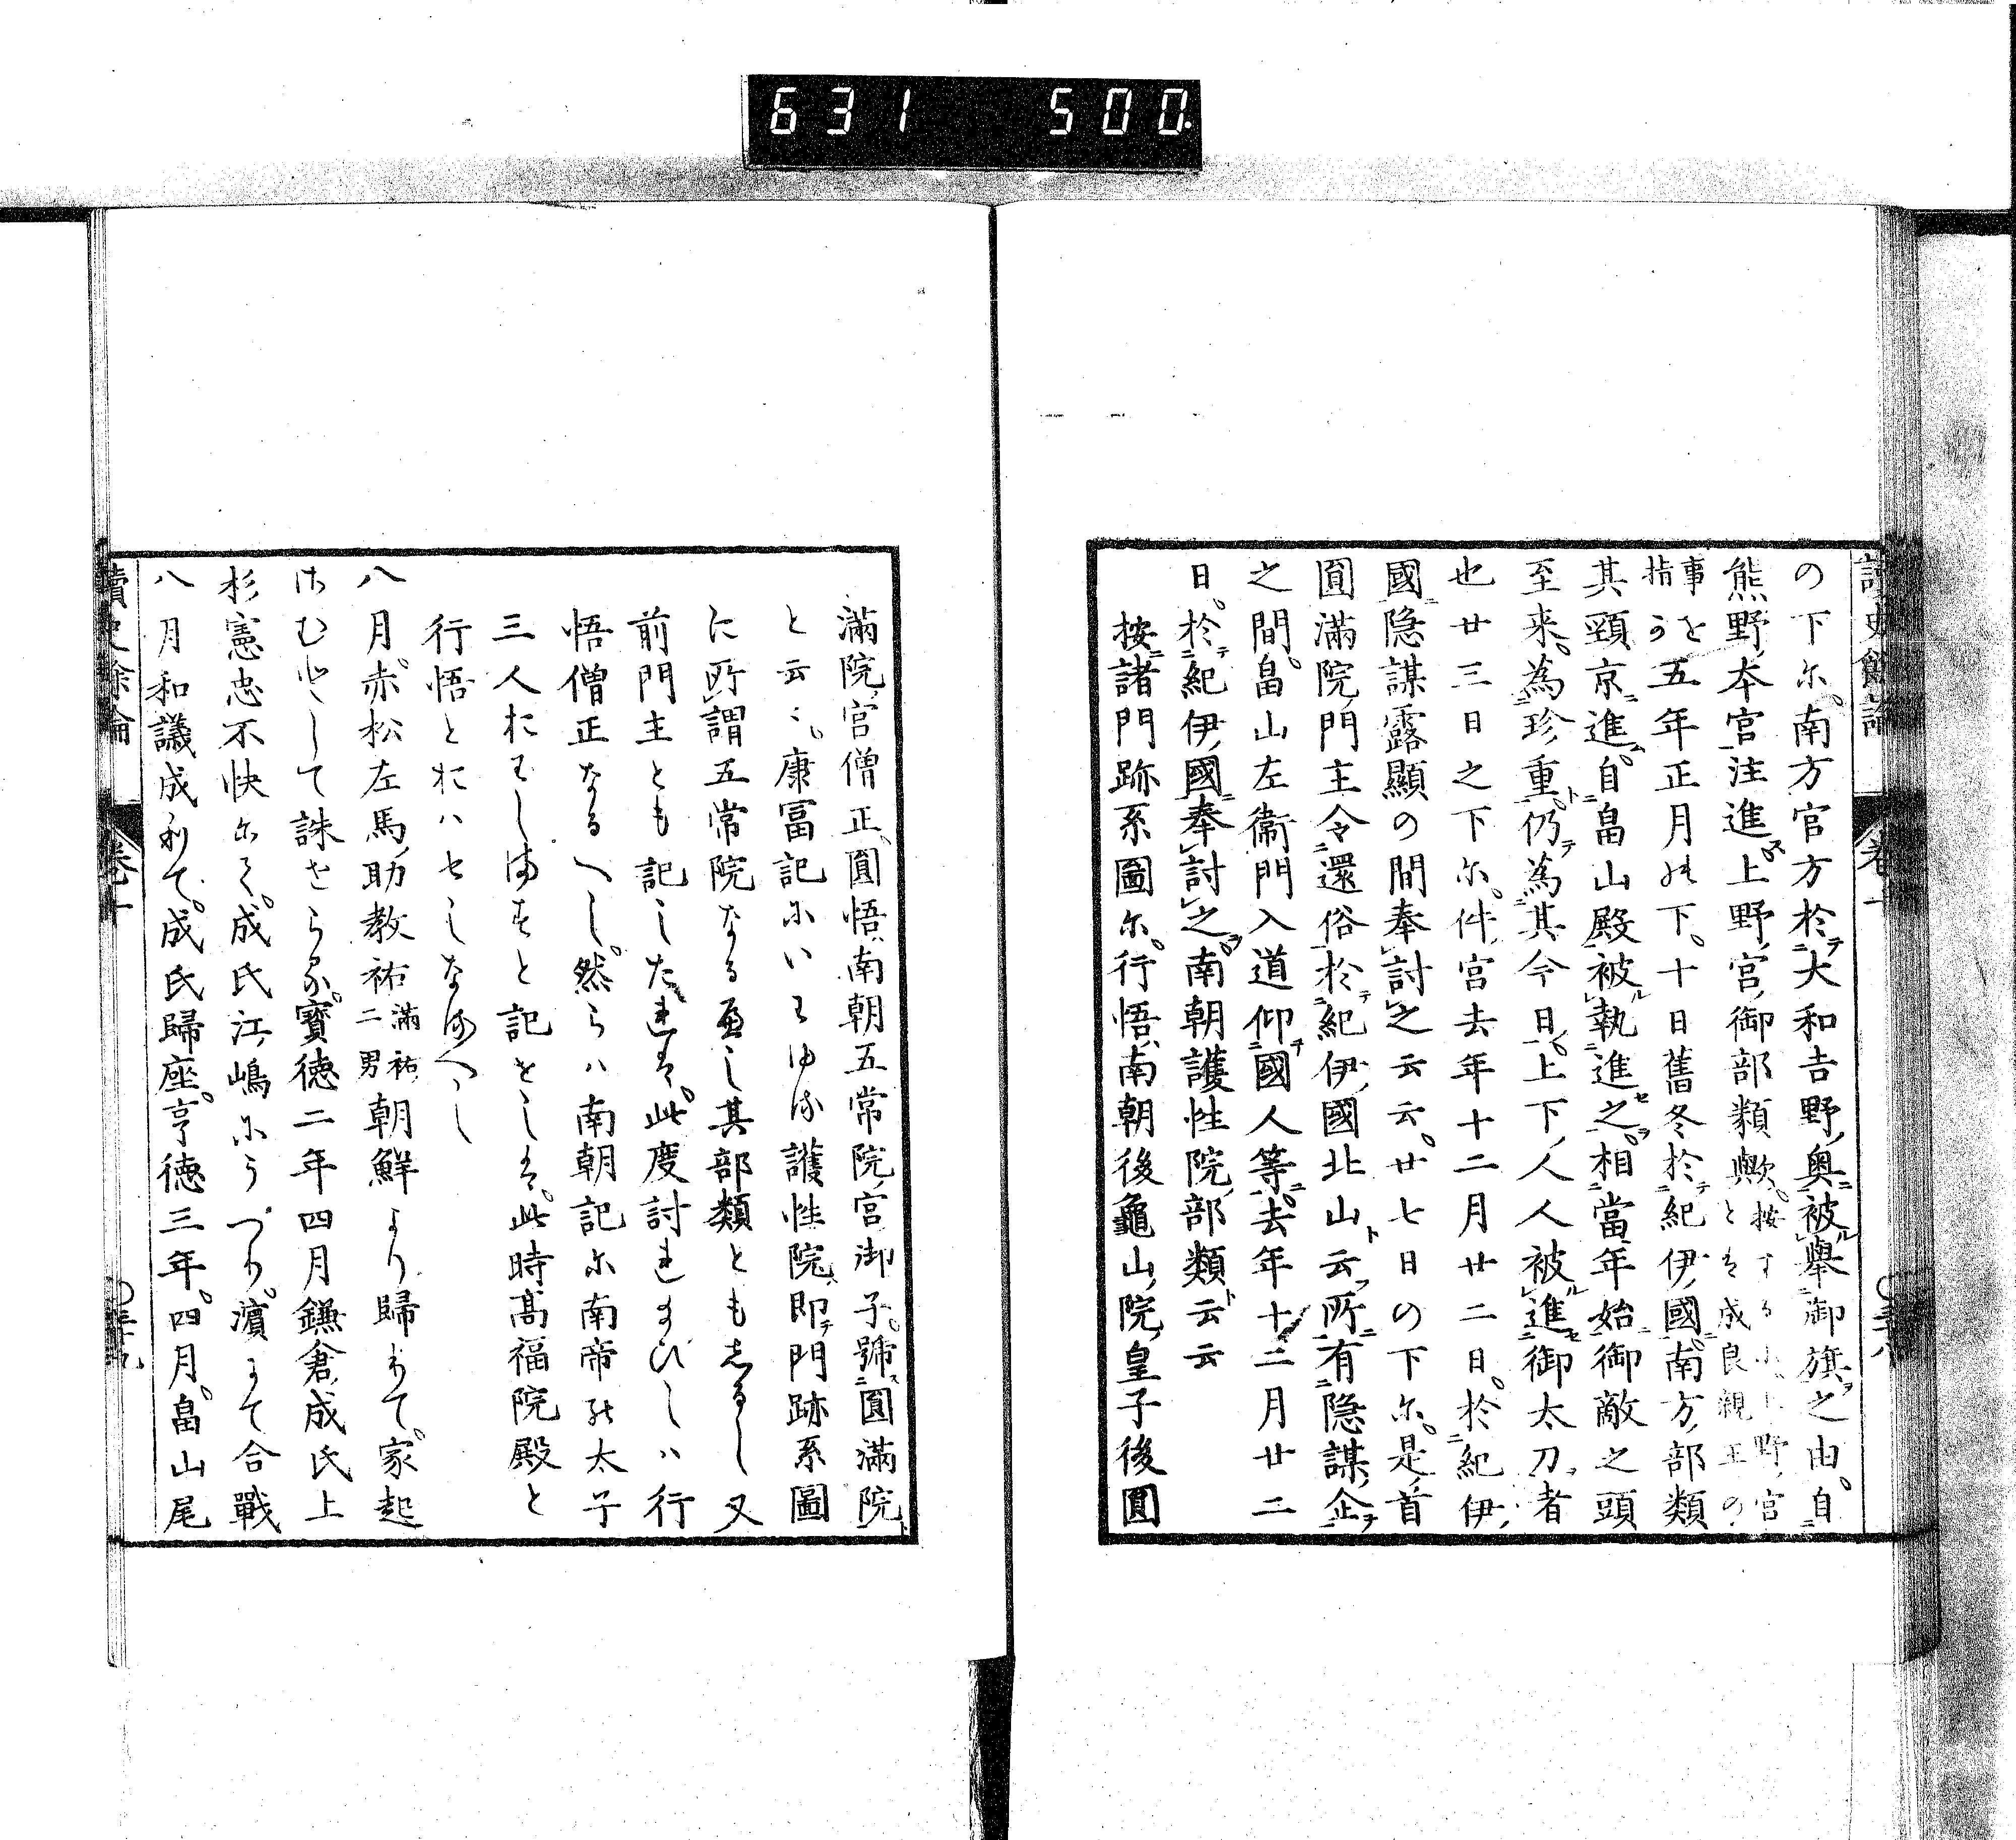 631 500
の下尓南方官方於大和吉野奥被舉御旗之由自
熊野本宮注進上野宮御部類歟按する小上野宮
與とは成良親王の
事を
指う五年正月の下十日舊冬於紀伊國南方部類
其頸京進自畠山殿被執進之相當年始御敵之頭
至来為珍重仍為其今日上下人人被進御太刀者
也廿三日之下尓件宮去年十二月廿二日於紀伊
國隠謀露顯の間奉討之云云廿七日の下尓是首
圓滿院門主令還俗於紀伊國北山云所有隠謀企
之間畠山左衞門入道仰國人等去年十二月廿二
日於紀伊國奉討之南朝護性院部類云云
按諸門跡系圖尓行悟南朝後龜山院皇子後圓
滿院宮僧正圓悟南朝五常院宮御子號圓滿院
と云々康冨記にいはゆる護性院即門跡系圖
に所謂五常院なるへし其部類ともしるし又
前門主とも記したれは此度討れまひしハ行
悟僧正なるへし然らハ南朝記尓南帝の太子
三人おはしますと記せしは此時髙福院殿と
行悟とおハせしなるへし
八月赤松左馬助教祐滿祐二男朝鮮より歸りて家起
さむとして誅せらる寳徳二年四月鎌倉成氏上
杉憲忠不快にて成氏江嶋にうつり濵にて合戰
八月和議成りて成氏歸座亨徳三年四月畠山尾
讀史餘論
卷十